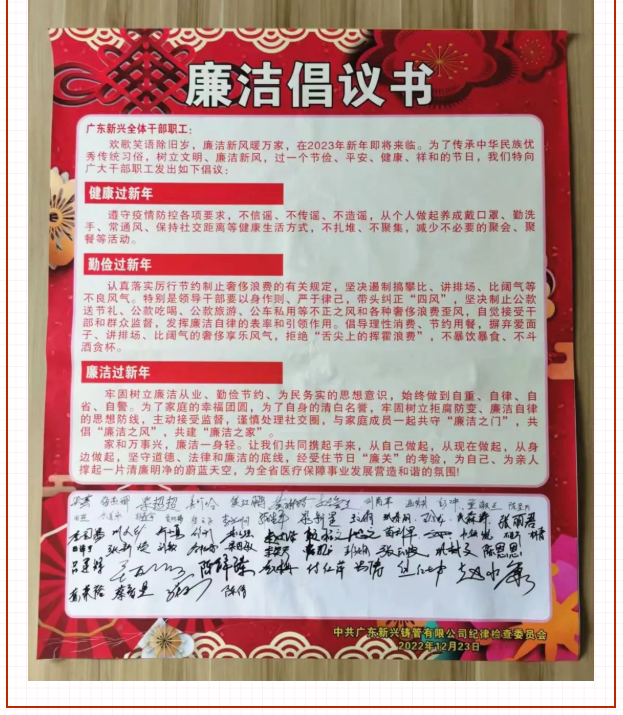 廉洁倡议书
广东新兴全体干部职工：
欢歌笑语除旧岁，廉洁新风暖万家，在2023年新年即将来临。为了传承中华民族优
秀传统习俗，树立文明、廉洁新风，过一个节俭、平安、健康、祥和的节日，我们特向
广大干部职工发出如下倡议：
健康过新年
遵守疫情防控各项要求，不信谣、不传谣、不造谣，从个人做起养成戴口罩、勤洗
手、常通风、保持社交距离等健康生活方式，不扎堆、不聚集，减少不必要的聚会、聚
餐等活动。
勤俭过新年
认真落实厉行节约制止奢侈浪费的有关规定，坚决遏制搞攀比、讲排场、比阔气等
不良风气。特别是领导干部要以身作则、严于律己，带头纠正“四风”，坚决制止公款
送节礼、公款吃喝、公款旅游、公车私用等不正之风和各种奢侈浪费歪风，自觉接受干
部和群众监督，发挥廉洁自律的表率和引领作用。倡导理性消费、节约用餐，摒弃爱面
子、讲排场、比阔气的奢侈享乐风气，拒绝“舌尖上的挥霍浪费”，不暴饮暴食、不斗
酒贪杯。
廉洁过新年
牢固树立廉洁从业、勤俭节约、为民务实的思想意识，始终做到自重、自律、自
省、自警。为了家庭的幸福团圆，为了自身的清白名誉，牢固树立拒腐防变、廉洁自律
的思想防线，主动接受监督，谨慎处理社交圈，与家庭成员一起共守“廉洁之门”，共
倡“廉洁之风”，共建“廉洁之家”。
家和万事兴，廉洁一身轻。让我们共同携起手来，从自己做起，从现在做起，从身
边做起，坚守道德、法律和廉洁的底线，经受住节日“廉关”的考验，为自己、为亲人
撑起一片清廉明净的蔚蓝天空，为全省医疗保障事业发展营造和谐的氛围!
陈思思
中共广东新兴铸管有限公司纪律检查委员会
2022年12月23日